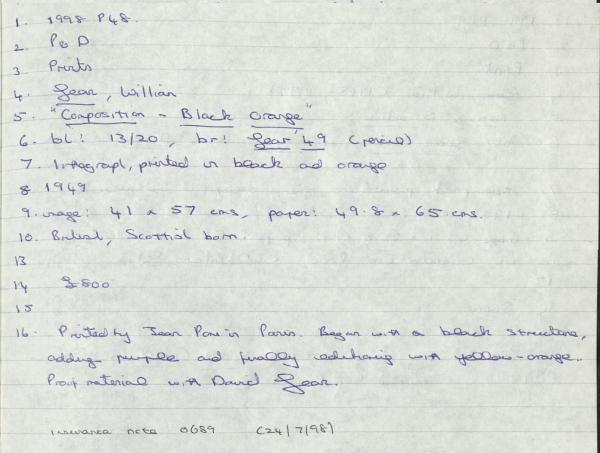 1. 1998 P48.
2. P & D
3. Prints
4. Gear, William
5. "Composition - Black Orange"
6. bl: 13/20, br: Gear '49 (pencil)
7. lithograph, printed in black and orange
8 1949
9. image: 41 x 57 cms, paper: 49.8 x 65 cms.
10. British, Scottish born
13
14 £800
15
16. Printed by Jean Pons in Paris. Began with a black structure,
adding purple and finally editioning with yellow-orange.
Proof material with David Gear.
insurance note 0689 (24/7/98)